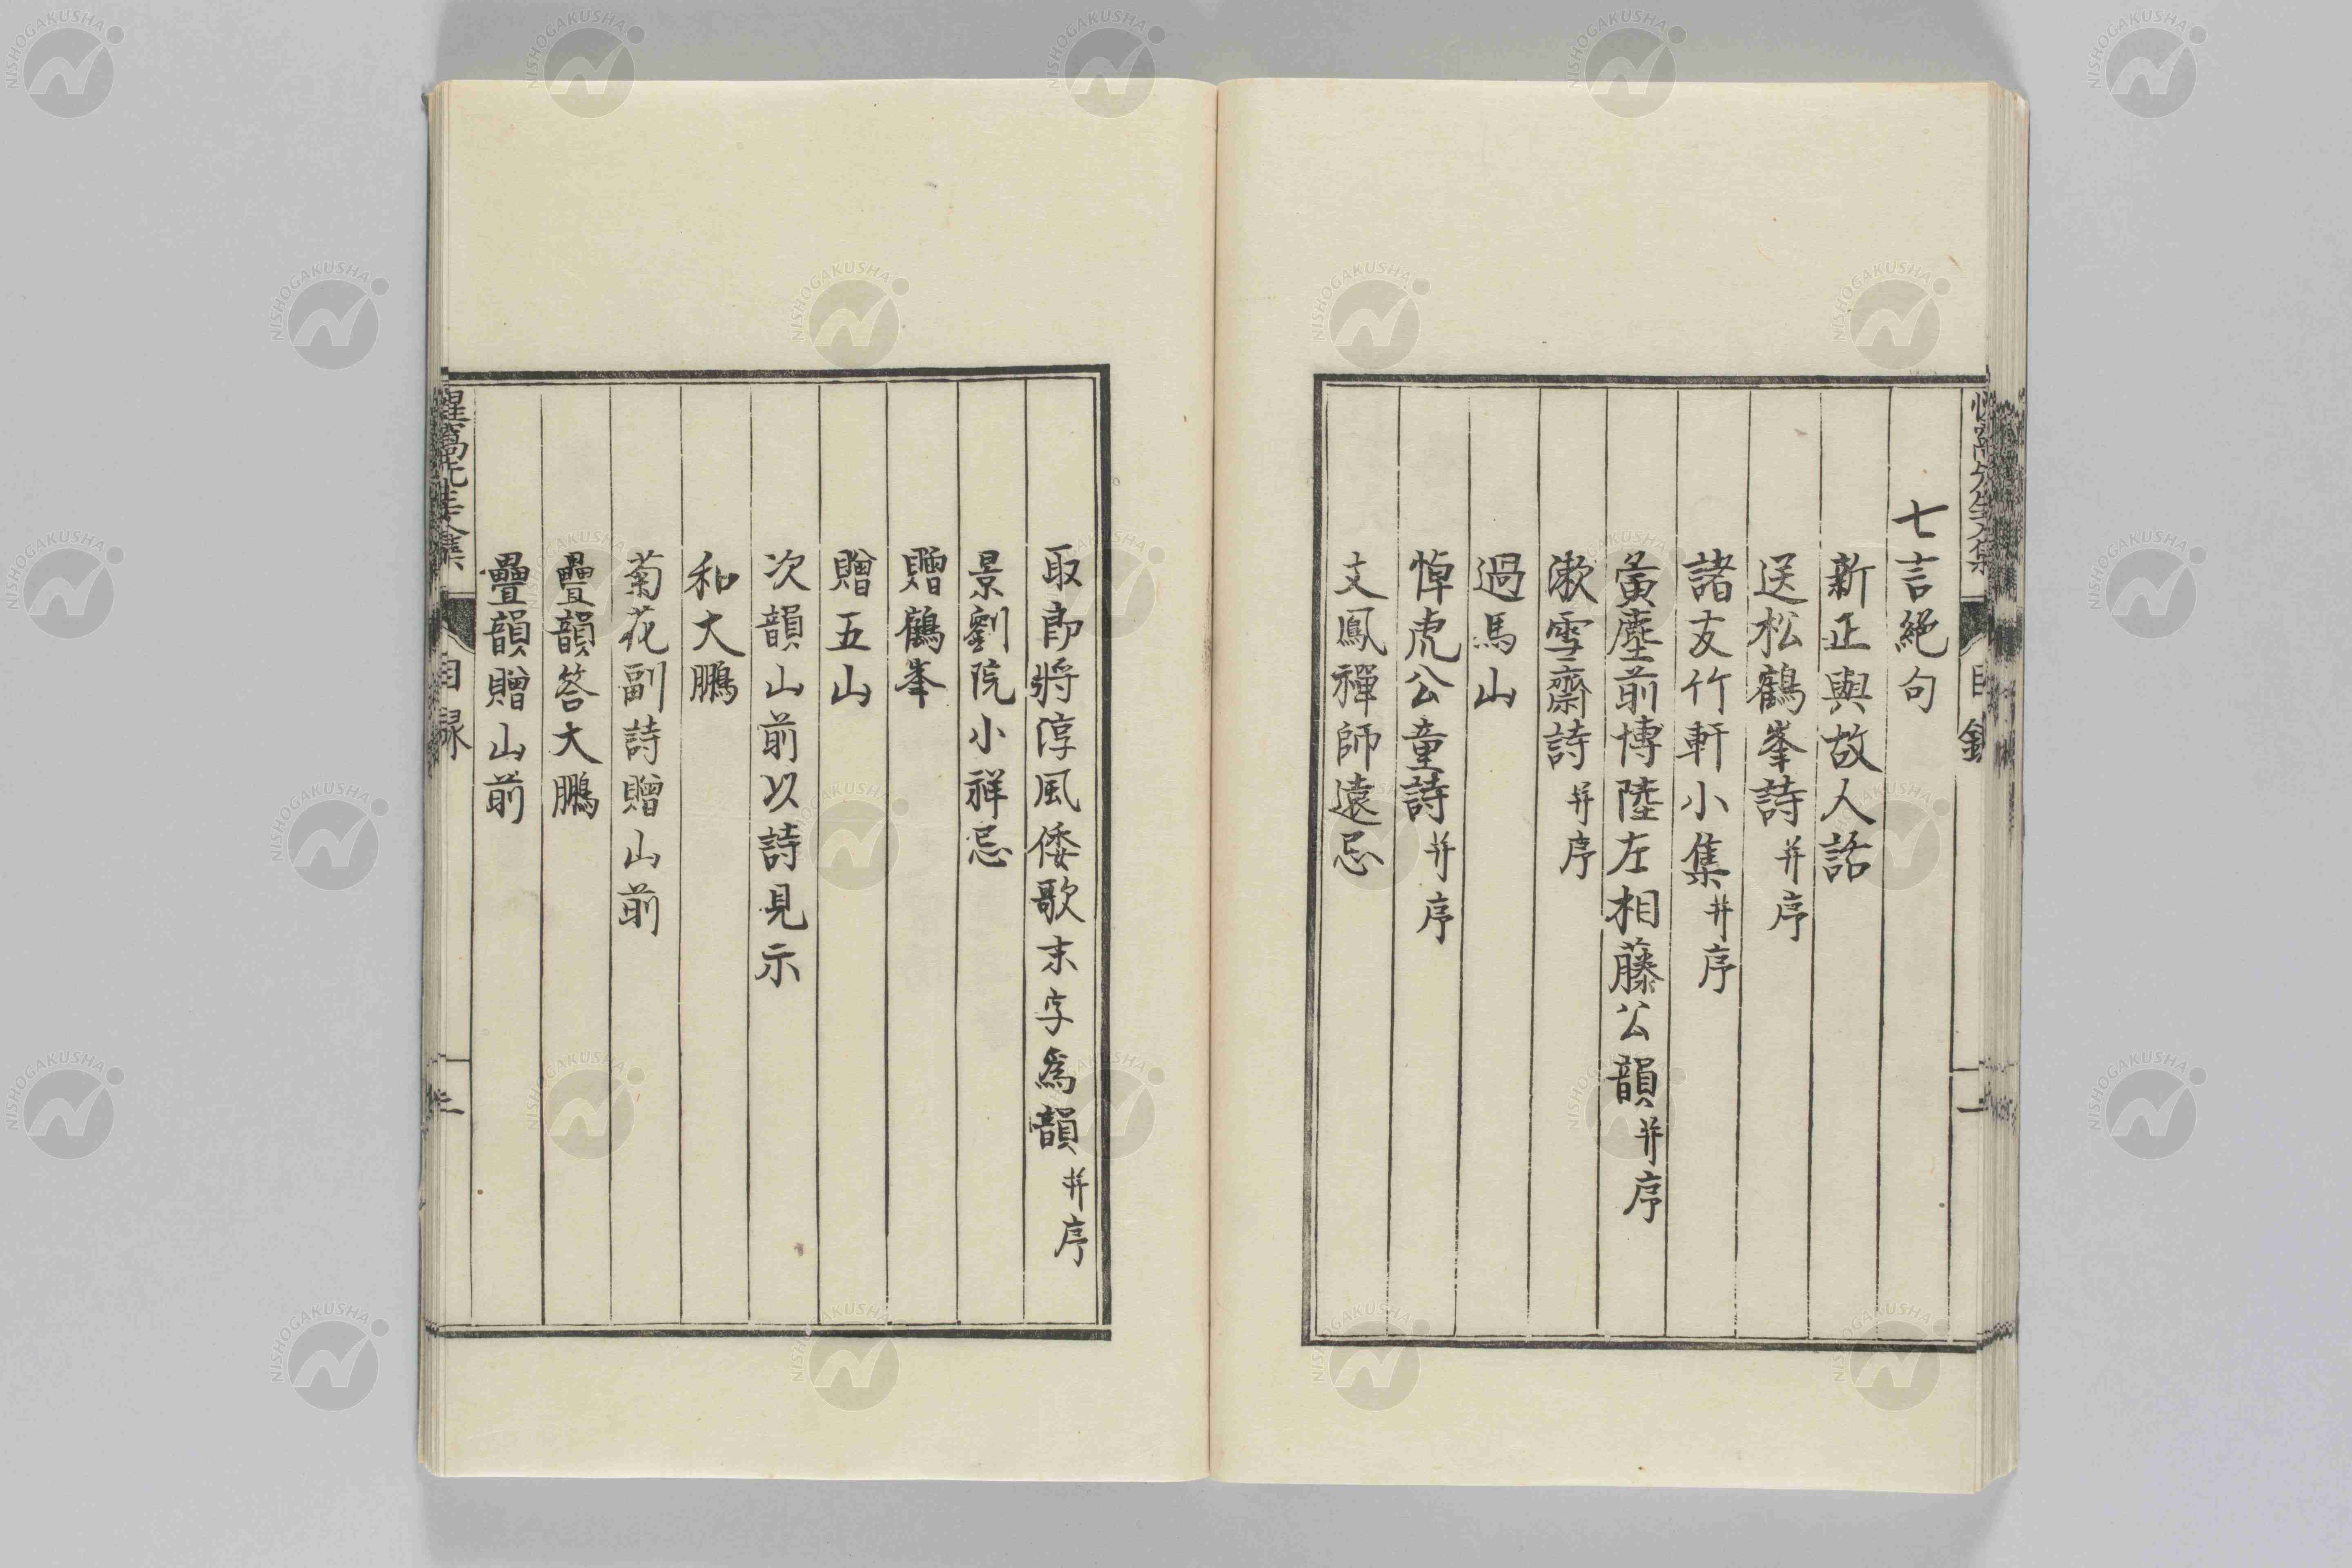 七言絶句
新正與故人話
送松鶴峯詩并序
諸友竹軒小集并序
黃塵前博陸左相藤公韻并序
漱雪齋詩并序
過馬山
悼虎公童詩并序
文鳳禪師遠忌
取郎將淳風倭歌末字爲韻并序
景劉院小祥忌
贈鶴峯
贈五山
次韻山前以詩見示
和大鵬
菊花副詩贈山前
疊韻答大鵬
疊韻贈山前
惺窩先生文集
目録
NISHOGAKUSHA